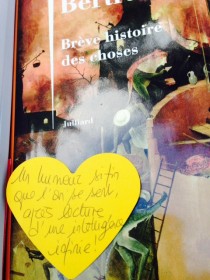 Brève histoire
des choses
Julliard
Un humour si fin
que l'on se sent,
après lecture,
d'une intelligence
infinie !